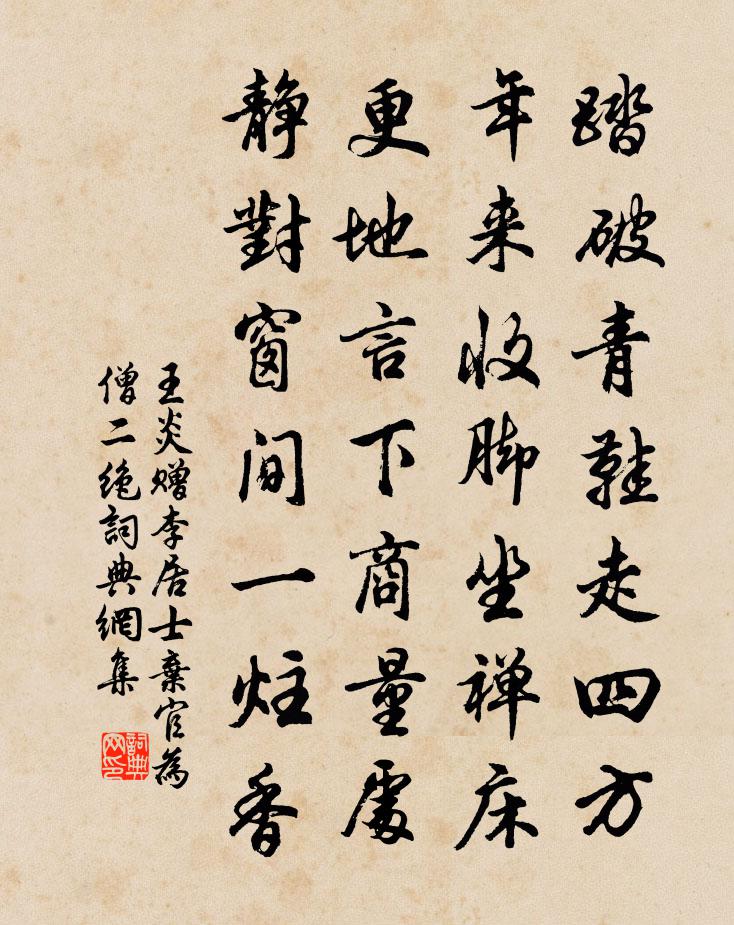 踏破青鞋走四方
年来收脚坐禅床
更地言下商量處
静對窗间一炷香
王炎赠李居士棄官為
僧二绝詞典網集
詞典
网印